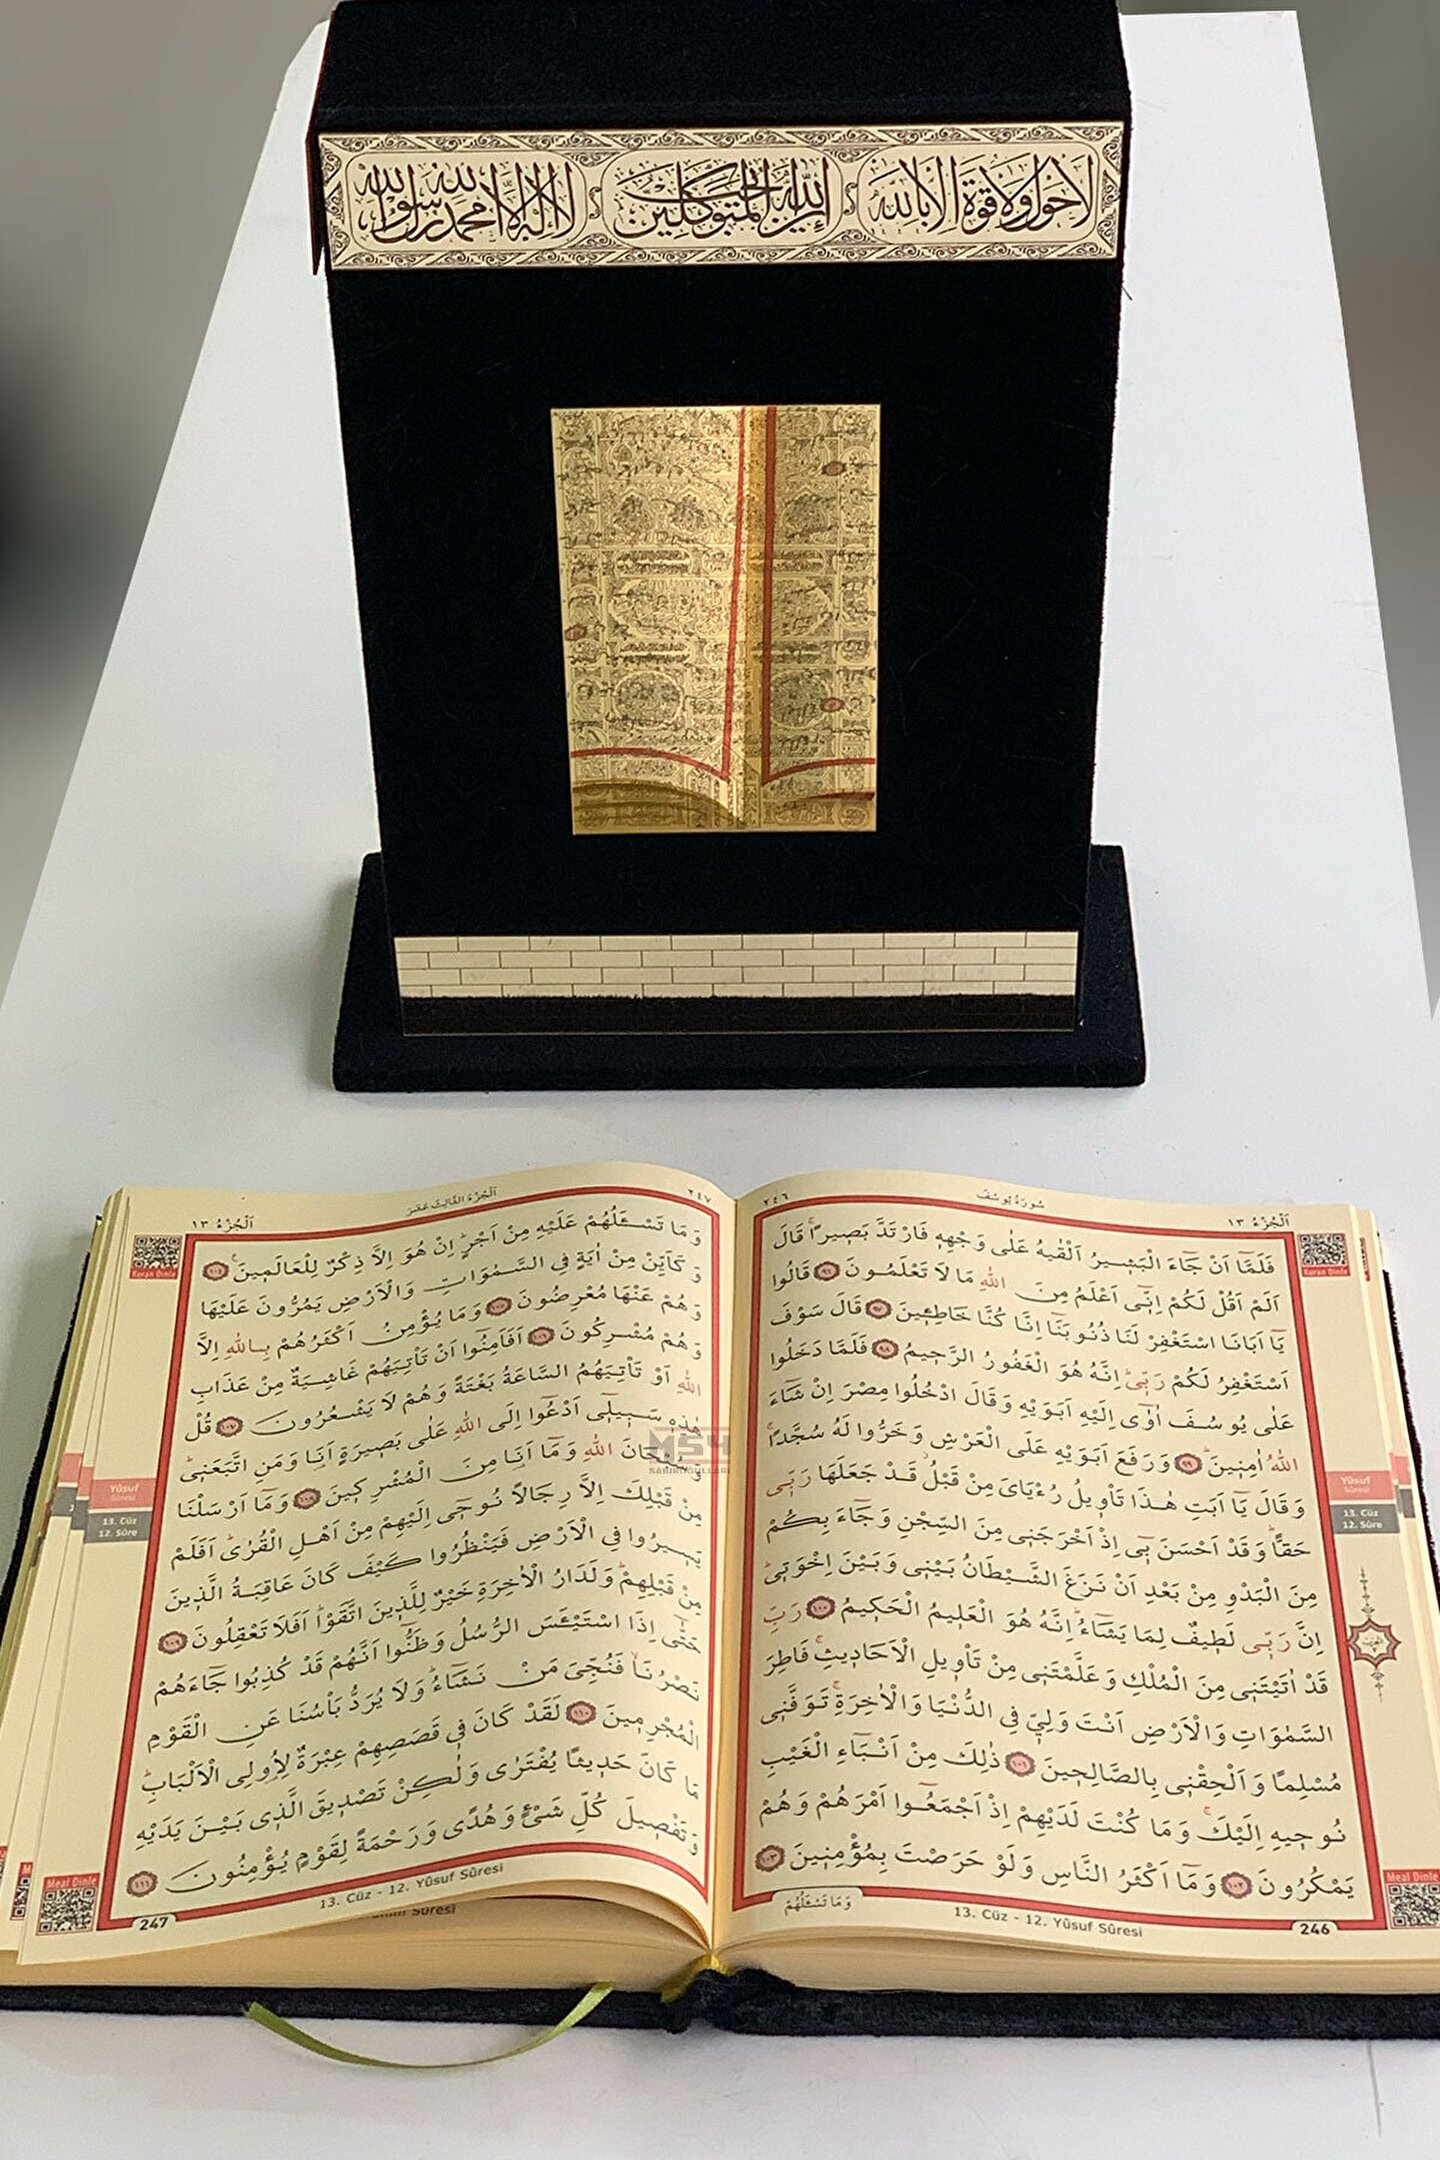 لَا حَوْلَ وَلَا قُوَّةَ اِلَّا بِاللّٰهِ
إن الله يحب المتوكلين
لا اله الا الله محمد رسول الله
اَلْجُزْءُ ١٣
سُورَةُ يُوسُفَ
٢٤٦
Kuran Dinle
فَلَمَّٓا اَنْ جَٓاءَ الْبَش۪يرُ اَلْقٰيهُ عَلٰى وَجْهِه۪ فَارْتَدَّ بَص۪يرًاۚ قَالَ
اَلَمْ اَقُلْ لَكُمْ اِنّ۪ٓي اَعْلَمُ مِنَ اللّٰهِ مَا لَا تَعْلَمُونَ ٩٦ قَالُوا
يَٓا اَبَانَا اسْتَغْفِرْ لَنَا ذُنُوبَنَٓا اِنَّا كُنَّا خَاطِـ۪ٔينَ ٩٧ قَالَ سَوْفَ
اَسْتَغْفِرُ لَكُمْ رَبّ۪يۜ اِنَّهُ هُوَ الْغَفُورُ الرَّح۪يمُ ٩٨ فَلَمَّا دَخَلُوا
عَلٰى يُوسُفَ اٰوٰٓى اِلَيْهِ اَبَوَيْهِ وَقَالَ ادْخُلُوا مِصْرَ اِنْ شَٓاءَ
اللّٰهُ اٰمِن۪ينَۜ ٩٩ وَرَفَعَ اَبَوَيْهِ عَلَى الْعَرْشِ وَخَرُّوا لَهُ سُجَّدًاۚ
وَقَالَ يَٓا اَبَتِ هٰذَا تَأْو۪يلُ رُءْيَايَ مِنْ قَبْلُۘ قَدْ جَعَلَهَا رَبّ۪ي
حَقًّاۜ وَقَدْ اَحْسَنَ ب۪ٓي اِذْ اَخْرَجَن۪ي مِنَ السِّجْنِ وَجَٓاءَ بِكُمْ
مِنَ الْبَدْوِ مِنْ بَعْدِ اَنْ نَزَغَ الشَّيْطَانُ بَيْن۪ي وَبَيْنَ اِخْوَت۪يۜ
اِنَّ رَبّ۪ي لَط۪يفٌ لِمَا يَشَٓاءُۜ اِنَّهُ هُوَ الْعَل۪يمُ الْحَك۪يمُ ١٠٠ رَبِّ
قَدْ اٰتَيْتَن۪ي مِنَ الْمُلْكِ وَعَلَّمْتَن۪ي مِنْ تَأْو۪يلِ الْاَحَاد۪يثِۚ فَاطِرَ
السَّمٰوَاتِ وَالْاَرْضِ اَنْتَ وَلِيّ۪ فِي الدُّنْيَا وَالْاٰخِرَةِۚ تَوَفَّن۪ي
مُسْلِمًا وَاَلْحِقْن۪ي بِالصَّالِح۪ينَ ١٠١ ذٰلِكَ مِنْ اَنْبَٓاءِ الْغَيْبِ
نُوح۪يهِ اِلَيْكَۚ وَمَا كُنْتَ لَدَيْهِمْ اِذْ اَجْمَعُٓوا اَمْرَهُمْ وَهُمْ
يَمْكُرُونَ ١٠٢ وَمَٓا اَكْثَرُ النَّاسِ وَلَوْ حَرَصْتَ بِمُؤْمِن۪ينَ ١٠٣
وَمَا تَسْـَٔلُهُمْ
13. Cüz - 12. Yûsuf Sûresi
246
Yûsuf
Sûresi
13. Cüz
12. Sûre
Meal Dinle
٢٤٧
اَلْجُزْءُ الثَّالِثَ عَشَرَ
اَلْجُزْءُ ١٣
Kuran Dinle
وَمَا تَسْـَٔلُهُمْ عَلَيْهِ مِنْ اَجْرٍۜ اِنْ هُوَ اِلَّا ذِكْرٌ لِلْعَالَم۪ينَ۟ ١٠٤
وَكَاَيِّنْ مِنْ اٰيَةٍ فِي السَّمٰوَاتِ وَالْاَرْضِ يَمُرُّونَ عَلَيْهَا
وَهُمْ عَنْهَا مُعْرِضُونَ ١٠٥ وَمَا يُؤْمِنُ اَكْثَرُهُمْ بِاللّٰهِ اِلَّا
وَهُمْ مُشْرِكُونَ ١٠٦ اَفَاَمِنُٓوا اَنْ تَأْتِيَهُمْ غَاشِيَةٌ مِنْ عَذَابِ
اللّٰهِ اَوْ تَأْتِيَهُمُ السَّاعَةُ بَغْتَةً وَهُمْ لَا يَشْعُرُونَ ١٠٧ قُلْ
هٰذِه۪ سَب۪يل۪ٓي اَدْعُٓوا اِلَى اللّٰهِ عَلٰى بَص۪يرَةٍ اَنَا۬ وَمَنِ اتَّبَعَن۪يۜ
وَسُبْحَانَ اللّٰهِ وَمَٓا اَنَا۬ مِنَ الْمُشْرِك۪ينَ ١٠٨ وَمَٓا اَرْسَلْنَا
مِنْ قَبْلِكَ اِلَّا رِجَالًا نُوح۪ٓي اِلَيْهِمْ مِنْ اَهْلِ الْقُرٰىۜ اَفَلَمْ
يَس۪يرُوا فِي الْاَرْضِ فَيَنْظُرُوا كَيْفَ كَانَ عَاقِبَةُ الَّذ۪ينَ
مِنْ قَبْلِهِمْۜ وَلَدَارُ الْاٰخِرَةِ خَيْرٌ لِلَّذ۪ينَ اتَّقَوْاۜ اَفَلَا تَعْقِلُونَ ١٠٩
حَتّٰٓى اِذَا اسْتَيْـَٔسَ الرُّسُلُ وَظَنُّٓوا اَنَّهُمْ قَدْ كُذِبُوا جَٓاءَهُمْ
نَصْرُنَاۙ فَنُجِّيَ مَنْ نَشَٓاءُۜ وَلَا يُرَدُّ بَأْسُنَا عَنِ الْقَوْمِ
الْمُجْرِم۪ينَ ١١٠ لَقَدْ كَانَ ف۪ي قَصَصِهِمْ عِبْرَةٌ لِاُو۬لِي الْاَلْبَابِۜ
مَا كَانَ حَد۪يثًا يُفْتَرٰى وَلٰكِنْ تَصْد۪يقَ الَّذ۪ي بَيْنَ يَدَيْهِ
وَتَفْص۪يلَ كُلِّ شَيْءٍ وَهُدًى وَرَحْمَةً لِقَوْمٍ يُؤْمِنُونَ ١١١
13. Cüz - 12. Yûsuf Sûresi
247
Yûsuf
Sûresi
13. Cüz
12. Sûre
Meal Dinle
Sûresi
MSY